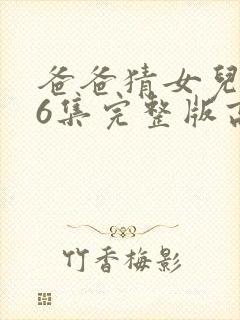 爸爸猜女兒
6集完整版高
竹香梅影